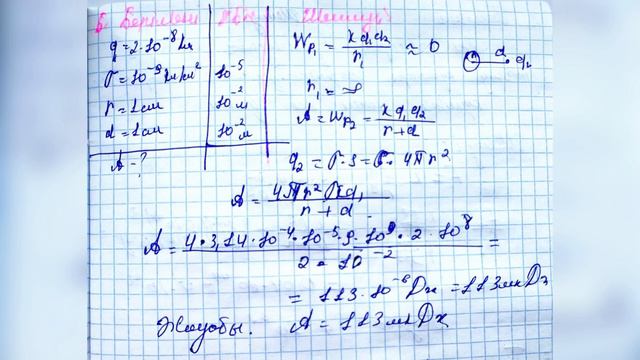 Берилген ХБЖ Шешуі
q = 2·10⁻⁸ Кл
σ = 10⁻⁹ Кл/см² 10⁻⁵
r = 1 см 10⁻² м
d = 1 см 10⁻² м
A - ?
Wp₁ = kq₁q₂ / r₁ ≈ 0
d q₁
r₁ = ∞
A = Wp₂ = kq₁q₂ / r+d
q₂ = σ·S = σ·4πr²
A = 4πr²σkq₁ / r+d
A = 4·3,14·10⁻⁴·10⁻⁵·9·10⁹·2·10⁸ / 2·10⁻² =
= 113·10⁻⁶ Дж = 113 мкДж
Жауабы. A = 113 мкДж